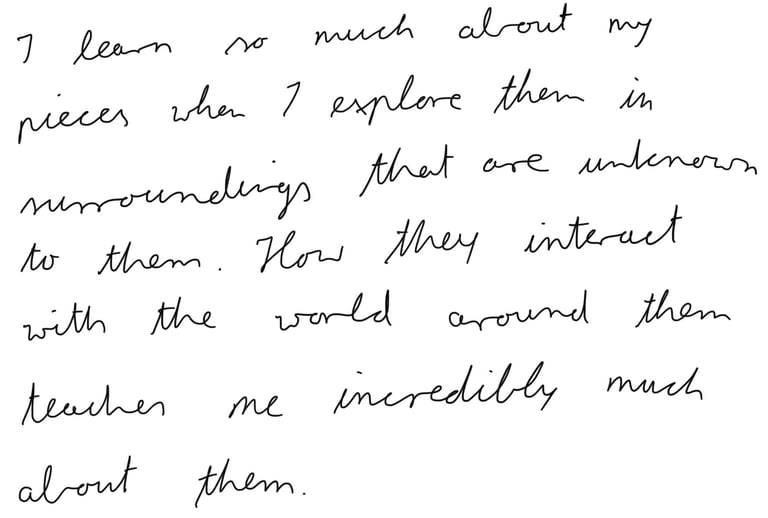 I learn so much about my
pieces when I explore them in
surroundings that are unknown
to them. How they interact
with the world around them
teaches me incredibly much
about them.